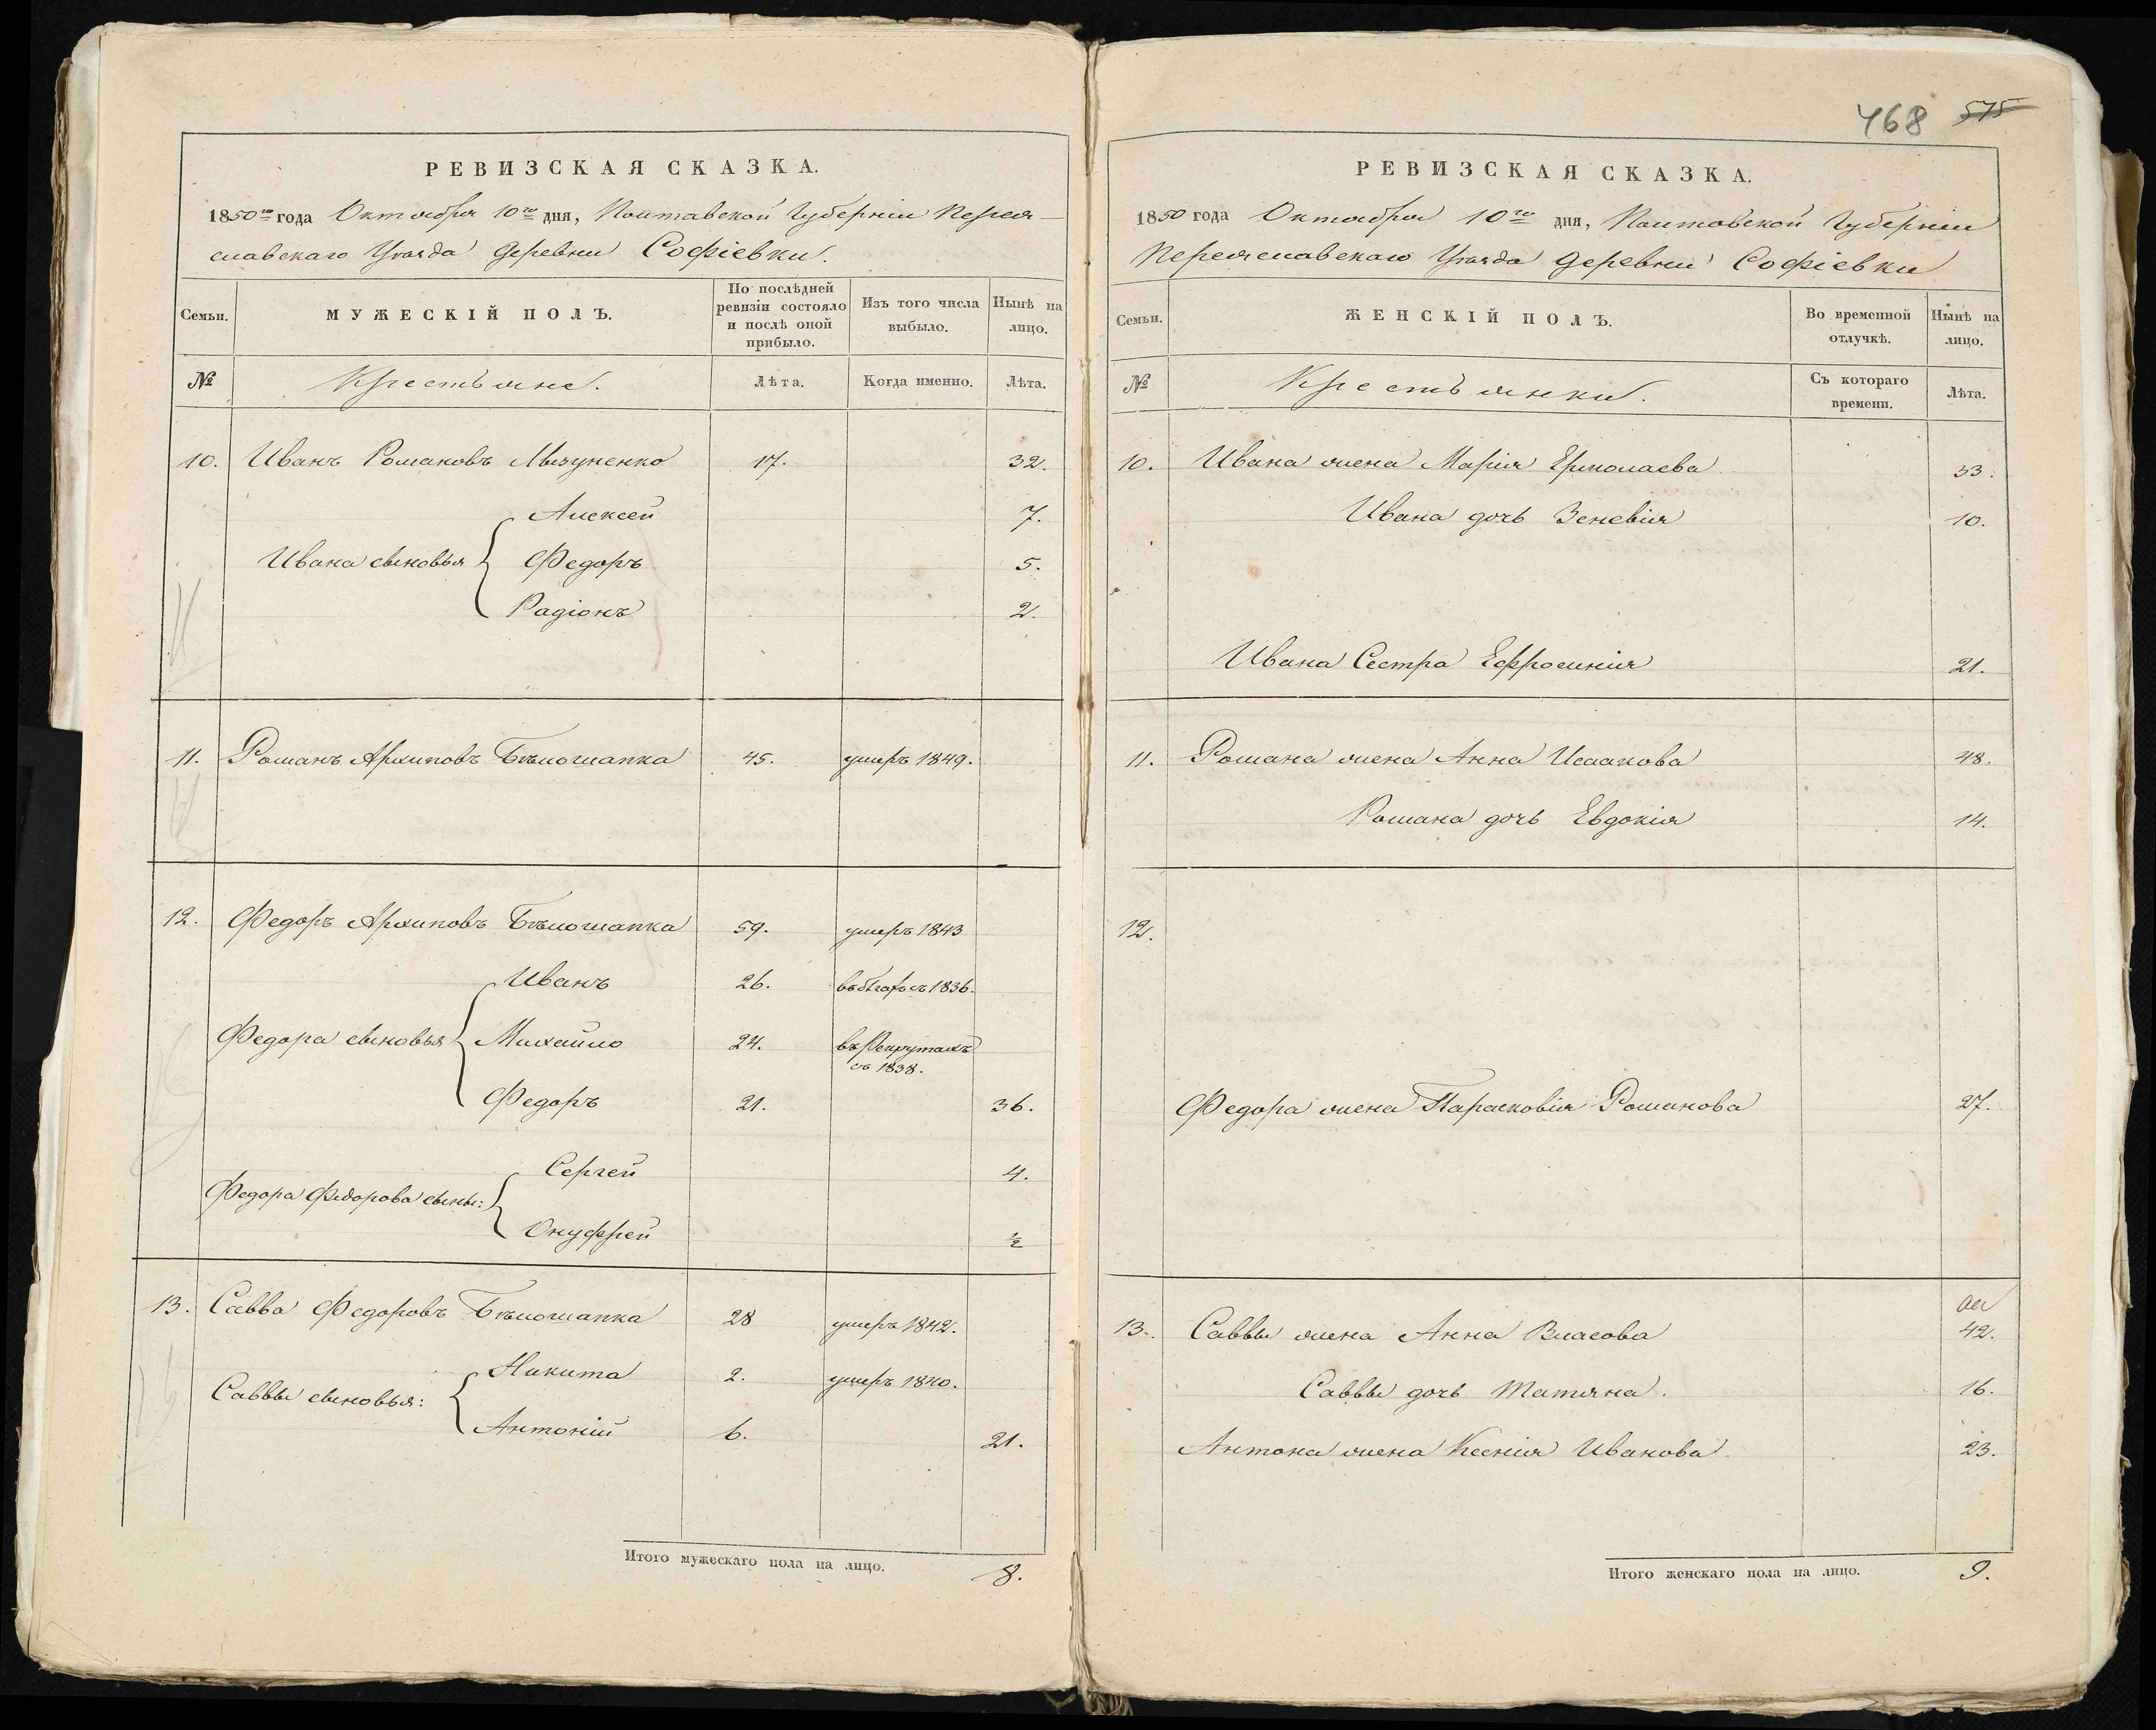 РЕВИЗСКАЯ СКАЗКА.
1850го года Октября 10го дня, Полтавской Губерніи Перея-
славскаго Уѣзда Деревни Софіевки.
Семьи. МУЖЕСКІЙ ПОЛЪ. По послѣдней ревизіи состояло и послѣ оной прибыло. Изъ того числа выбыло. Нынѣ на лицо.
№ Крестьяне. Лѣта. Когда именно. Лѣта.
10. Иванъ Романовъ 17. 32.
Алексей 7.
Ивана сыновья Федоръ 5.
Радіонъ 2.
11. Романъ Архиповъ Бѣлошапка 45. умеръ 1849.
12. Федоръ Архиповъ Бѣлошапка 59. умеръ 1843
Иванъ 26. въ бѣгахъ съ 1836.
Федора сыновья Михайло 24. въ Рекрутахъ
съ 1838.
Федоръ 21. 36.
Сергей 4.
Федора Федорова сыны:
Онуфрей ½
13. Савва Федоровъ Бѣлошапка 28 умеръ 1842.
Никита 2. умеръ 1840.
Саввы сыновья:
Антоній 6. 21.
Итого мужескаго пола на лицо. 8.
468 575
РЕВИЗСКАЯ СКАЗКА.
1850 года Октября 10го дня, Полтавской Губерніи
Переяславскаго Уѣзда Деревни Софіевки
Семьи. ЖЕНСКІЙ ПОЛЪ. Во временной отлучкѣ. Нынѣ на лицо.
№ Крестьянки. Съ котораго времени. Лѣта.
10. Ивана жена Марія Ермолаева 33.
Ивана дочь Зеневія 10.
Ивана Сестра Ефросинія 21.
11. Романа жена Анна Исаакова 48.
Романа дочь Евдокія 14.
12.
Федора жена Парасковія Романова 27.
13. Саввы жена Анна Власова 42.
Саввы дочь Татяна. 16.
Антона жена Ксенія Иванова 23.
Итого женскаго пола на лицо. 9.